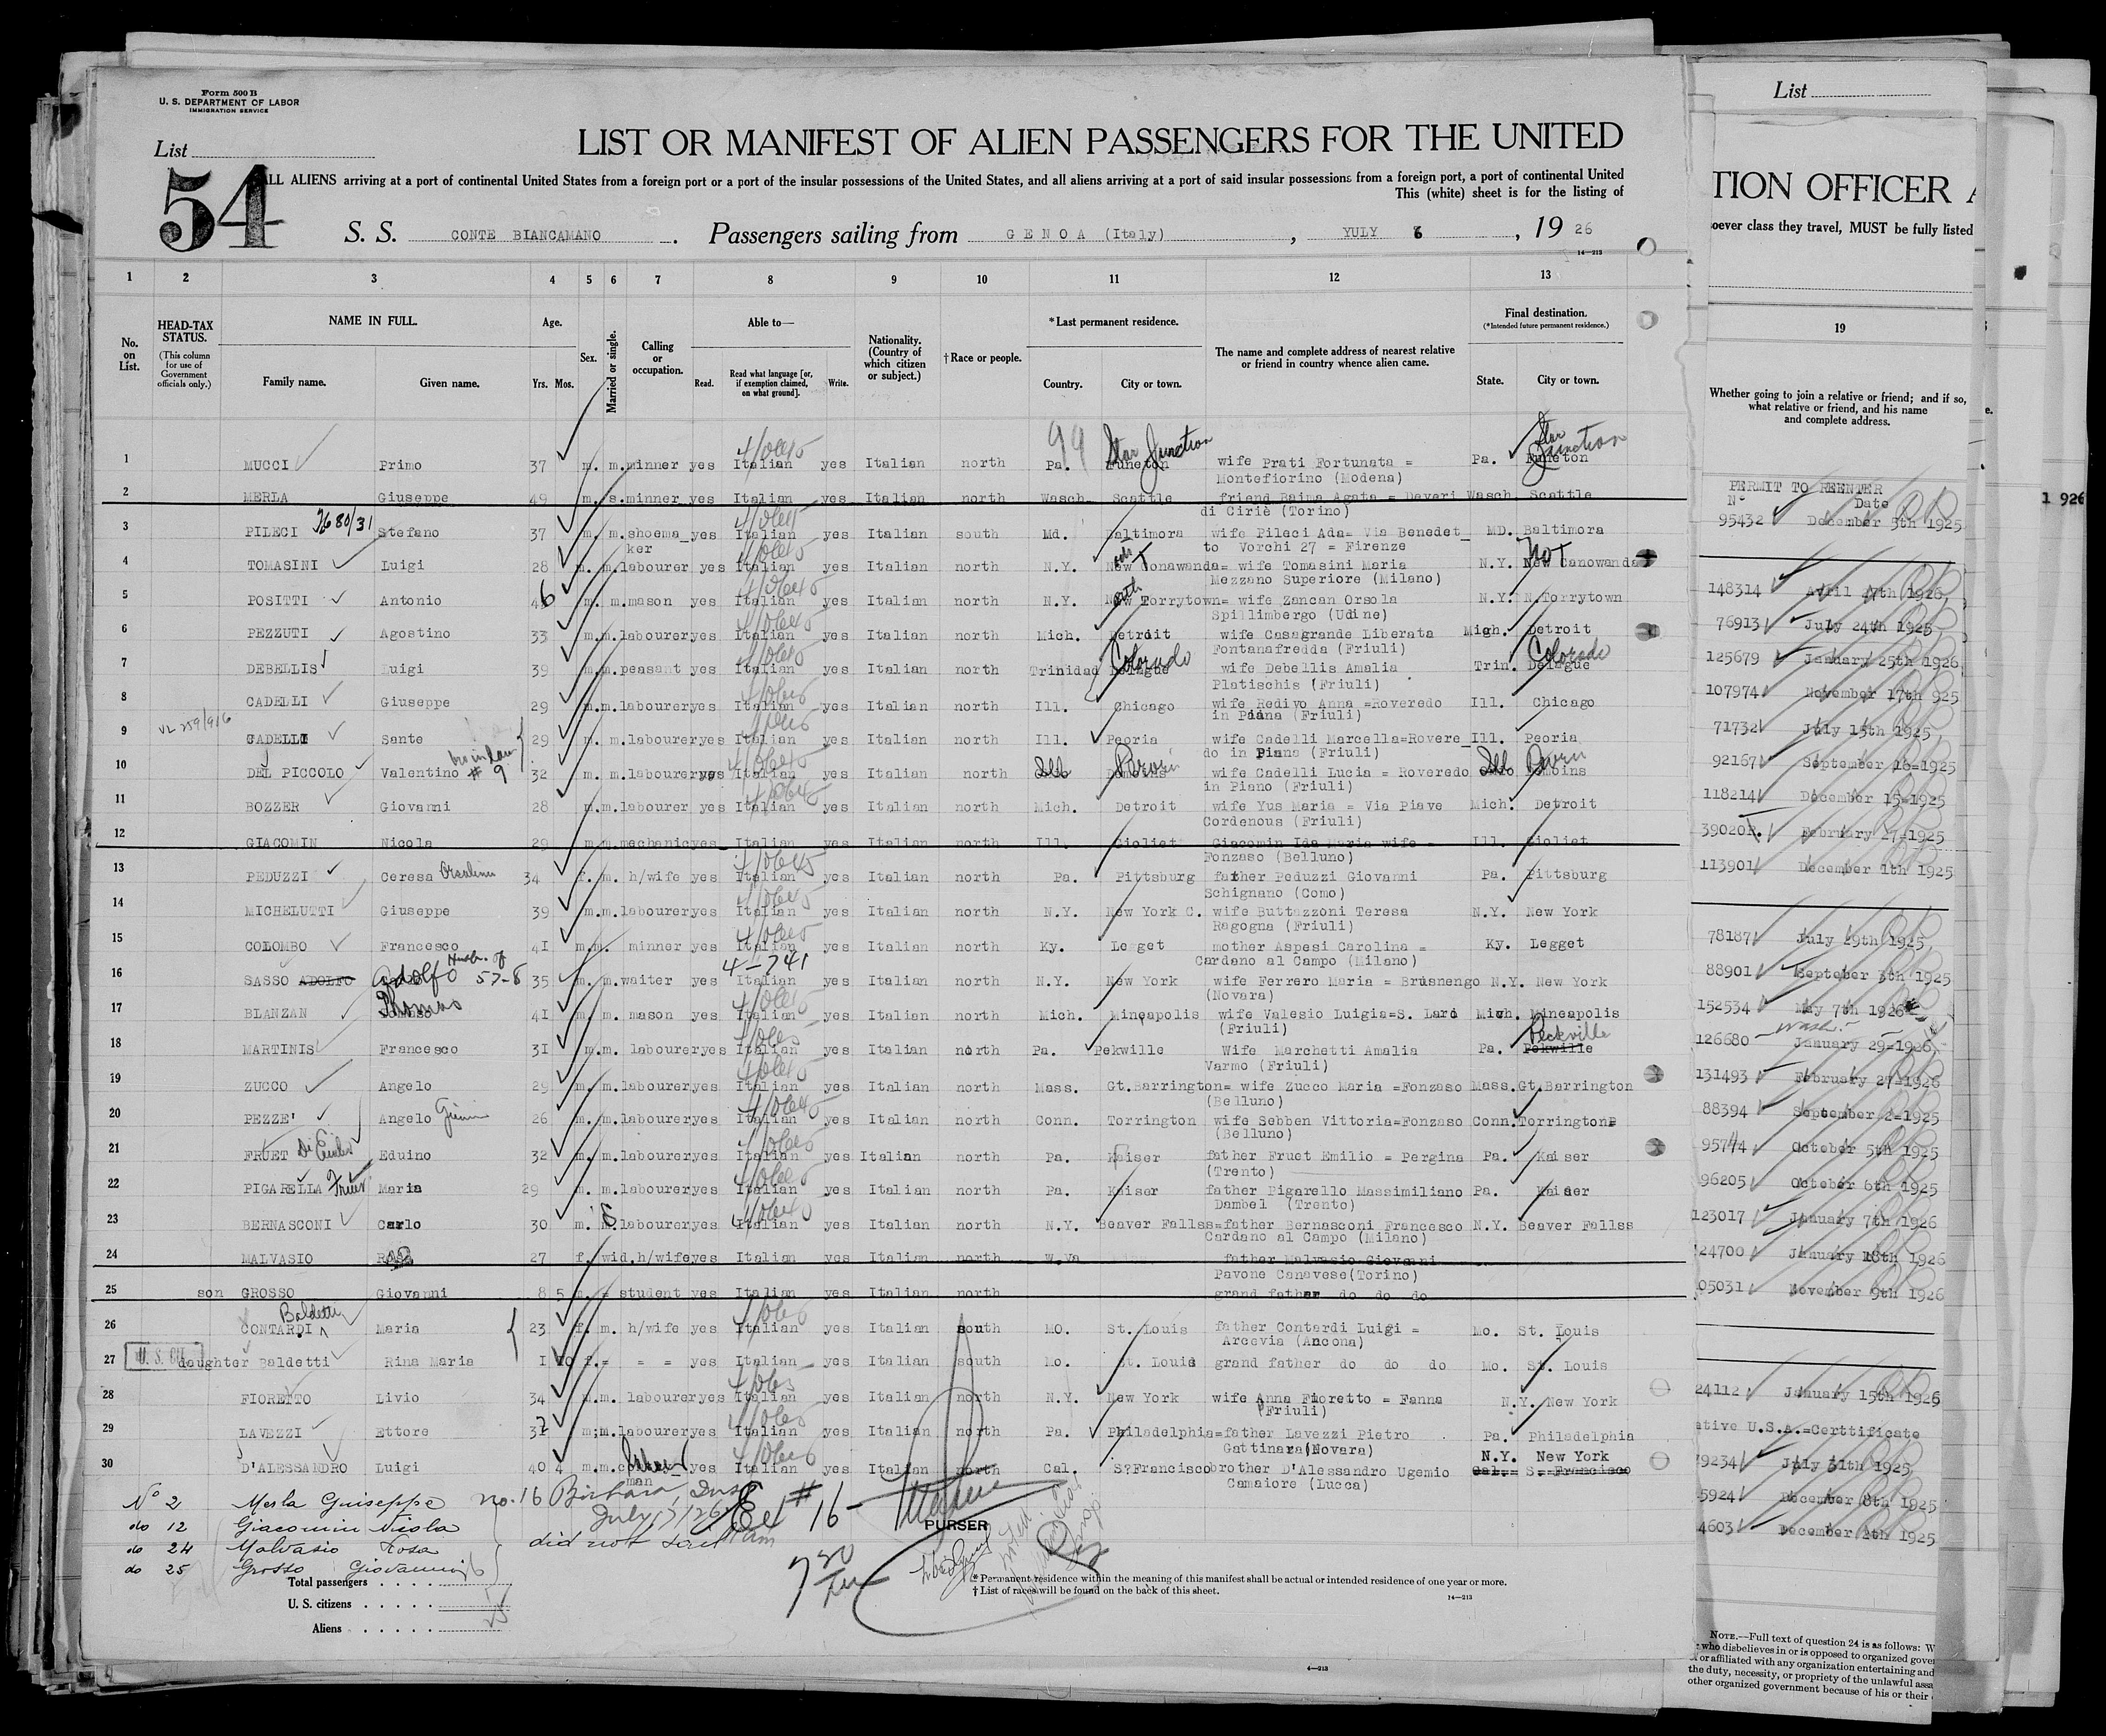 Form 500 B
U. S. DEPARTMENT OF LABOR
IMMIGRATION SERVICE
List
54
LIST OR MANIFEST OF ALIEN PASSENGERS FOR THE UNITED
ALL ALIENS arriving at a port of continental United States from a foreign port or a port of the insular possessions of the United States, and all aliens arriving at a port of said insular possessions from a foreign port, a port of continental United
This (white) sheet is for the listing of
S. S. CONTE BIANCAMANO . Passengers sailing from GENOA (Italy) , YULY 6 , 19 26
14—213
1 2 3 4 5 6 7 8 9 10 11 12 13
No. on List.
HEAD-TAX STATUS.
(This column for use of Government officials only.)
NAME IN FULL.
Family name. Given name.
Age.
Yrs. Mos.
Sex.
Married or single.
Calling or occupation.
Able to—
Read. Read what language [or, if exemption claimed, on what ground]. Write.
Nationality. (Country of which citizen or subject.)
† Race or people.
* Last permanent residence.
Country. City or town.
The name and complete address of nearest relative or friend in country whence alien came.
Final destination.
(* Intended future permanent residence.)
State. City or town.
99 Star Junction Star Junction
1 MUCCI Primo 37 m. m. minner yes Italian yes Italian north Pa. wife Prati Fortunata = Pa.
Montefiorino (Modena)
2 MERLA Giuseppe 49 m. s. minner yes Italian yes Italian north Wasch. Scattle friend Baima Agata = Deveri Wasch. Scattle
di Ciriè (Torino)
3 PILECI 7680/31 Stefano 37 m. m. shoema_ yes Italian yes Italian south Md. Baltimora wife Pileci Ada= Via Benedet_ MD. Baltimora
ker to Vorchi 27 = Firenze
4 TOMASINI Luigi 28 m. m. labourer yes Italian yes Italian north N.Y. New Conawanda= wife Tomasini Maria N.Y. New Canowanda
Mezzano Superiore (Milano)
5 POSITTI Antonio 46 m. m. mason yes Italian yes Italian north N.Y. North Torrytown= wife Zancan Orsola N.Y. N.Torrytown
Spillimbergo (Udine)
6 PEZZUTI Agostino 33 m. m. labourer yes Italian yes Italian north Mich. Detroit wife Casagrande Liberata Mich. Detroit
Fontanafredda (Friuli)
7 DEBELLIS Luigi 39 m. m. peasant yes Italian yes Italian north Trinidad Delague Colorado wife Debellis Amalia Trin. Delague Colorado
Platischis (Friuli)
8 CADELLI Giuseppe 29 m. m. labourer yes Italian yes Italian north Ill. Chicago wife Redivo Anna =Roveredo Ill. Chicago
in Piana (Friuli)
VL 259/916
9 CADELLI Sante 29 m. m. labourer yes Italian yes Italian north Ill. Peoria wife Cadelli Marcella=Rovere_ Ill. Peoria
bro in law # 9 do in Piano (Friuli)
10 DEL PICCOLO Valentino 32 m. m. labourer yes Italian yes Italian north Ill wife Cadelli Lucia = Roveredo Ill
in Piano (Friuli)
11 BOZZER Giovanni 28 m. m. labourer yes Italian yes Italian north Mich. Detroit wife Yus Maria = Via Piave Mich. Detroit
Cordenous (Friuli)
12 GIACOMIN Nicola 29 m. m. mechanic yes Italian yes Italian north Ill. Gioliet Giacomin Ida Maria wife = Ill. Gioliet
Fonzaso (Belluno)
13 PEDUZZI Ceresa 34 f. m. h/wife yes Italian yes Italian north Pa. Pittsburg father Peduzzi Giovanni Pa. Pittsburg
Schignano (Como)
14 MICHELUTTI Giuseppe 39 m. m. labourer yes Italian yes Italian north N.Y. New York C. wife Buttazzoni Teresa N.Y. New York
Ragogna (Friuli)
15 COLOMBO Francesco 41 m. m. minner yes Italian yes Italian north Ky. Legget mother Aspesi Carolina = Ky. Legget
Cardano al Campo (Milano)
Husb. of 57-8 4-741
16 SASSO ADOLFO Adolfo 35 m. m. waiter yes Italian yes Italian north N.Y. New York wife Ferrero Maria = Brusnengo N.Y. New York
(Novara)
17 BLANZAN Thomas 41 m. m. mason yes Italian yes Italian north Mich. Mineapolis wife Valesio Luigia=S. Lard Mich. Mineapolis
(Friuli)
18 MARTINIS Francesco 31 m. m. labourer yes Italian yes Italian north Pa. Pekwille Wife Marchetti Amalia Pa. Pekwille Peckville
Varmo (Friuli)
19 ZUCCO Angelo 29 m. m. labourer yes Italian yes Italian north Mass. Gt.Barrington= wife Zucco Maria =Fonzaso Mass. Gt.Barrington
(Belluno)
20 PEZZE' Angelo 26 m. m. labourer yes Italian yes Italian north Conn. Torrington wife Sebben Vittoria=Fonzaso Conn. Torrington
(Belluno)
21 FRUET Eduino 32 m. m. labourer yes Italian yes Italian north Pa. Kaiser father Fruet Emilio = Pergina Pa. Kaiser
(Trento)
22 PIGARELLA Maria 29 m. m. labourer yes Italian yes Italian north Pa. Kaiser father Pigarello Massimiliano Pa. Kaiser
Dambel (Trento)
23 BERNASCONI Carlo 30 m. S labourer yes Italian yes Italian north N.Y. Beaver Fallss=father Bernasconi Francesco N.Y. Beaver Fallss
Cardano al Campo (Milano)
24 MALVASIO Rosa 27 f. wid. h/wife yes Italian yes Italian north W.Va father Malvasio Giovanni
Pavone Canavese(Torino)
25 son GROSSO Giovanni 8 5 m. = student yes Italian yes Italian north grand father do do do
Baldetti
26 CONTARDI Maria 23 f. m. h/wife yes Italian yes Italian south MO. St. Louis father Contardi Luigi = Mo. St. Louis
Arcevia (Ancona)
27 daughter Baldetti Rina Maria 1 10 f. = = = yes Italian yes Italian south Mo. St. Louis grand father do do do Mo. St. Louis
28 FIORETTO Livio 34 m. m. labourer yes Italian yes Italian north N.Y. New York wife Anna Fioretto = Fanna N.Y. New York
(Friuli)
29 LAVEZZI Ettore 32 m; m. labourer yes Italian yes Italian north Pa. Philadelphia=father Lavezzi Pietro Pa. Philadelphia
Gattinara(Novara)
30 D'ALESSANDRO Luigi 40 4 m. m. yes Italian yes Italian north Cal. S?Francisco brother D'Alessandro Ugemio N.Y. New York
man Camaiore (Lucca) Cal.= S. Francisco
No 2 Merla Guiseppe
do 12 Giacomin Nicola
do 24 Malvasio Rosa
do 25 Grosso Giovanni
did not sail
no. 16
# 16
PURSER
Total passengers
U. S. citizens
Aliens
* Permanent residence within the meaning of this manifest shall be actual or intended residence of one year or more.
† List of races will be found on the back of this sheet.
14—213
List
TION OFFICER A
soever class they travel, MUST be fully listed
19
Whether going to join a relative or friend; and if so, what relative or friend, and his name and complete address.
PERMIT TO REENTER
N° Date
95432 December 5th 1925
148314 Avril 27th 1926
76913 July 24th 1925
125679 January 25th 1926
107974 November 17th 925
71732 July 15th 1925
92167 September 16=1925
118214 December 15=1925
39020 February 27=1925
113901 December 1th 1925
78187 July 29th 1925
88901 September 3th 1925
152534 May 7th 1926
Wash.
126680 January 29=1926
131493 February 27=1926
88394 September 2=1925
95774 October 5th 1925
96205 October 6th 1925
123017 January 7th 1926
24700 January 18th 1926
05031 November 9th 1926
24112 January 15th 1926
ative U.S.A.=Certtificate
79234 July 31th 1925
5924 December 8th 1925
4603 December 2th 1925
1 926
NOTE.—Full text of question 24 is as follows: W
who disbelieves in or is opposed to organized gover
or affiliated with any organization entertaining and
the duty, necessity, or propriety of the unlawful assa
other organized government because of his or their